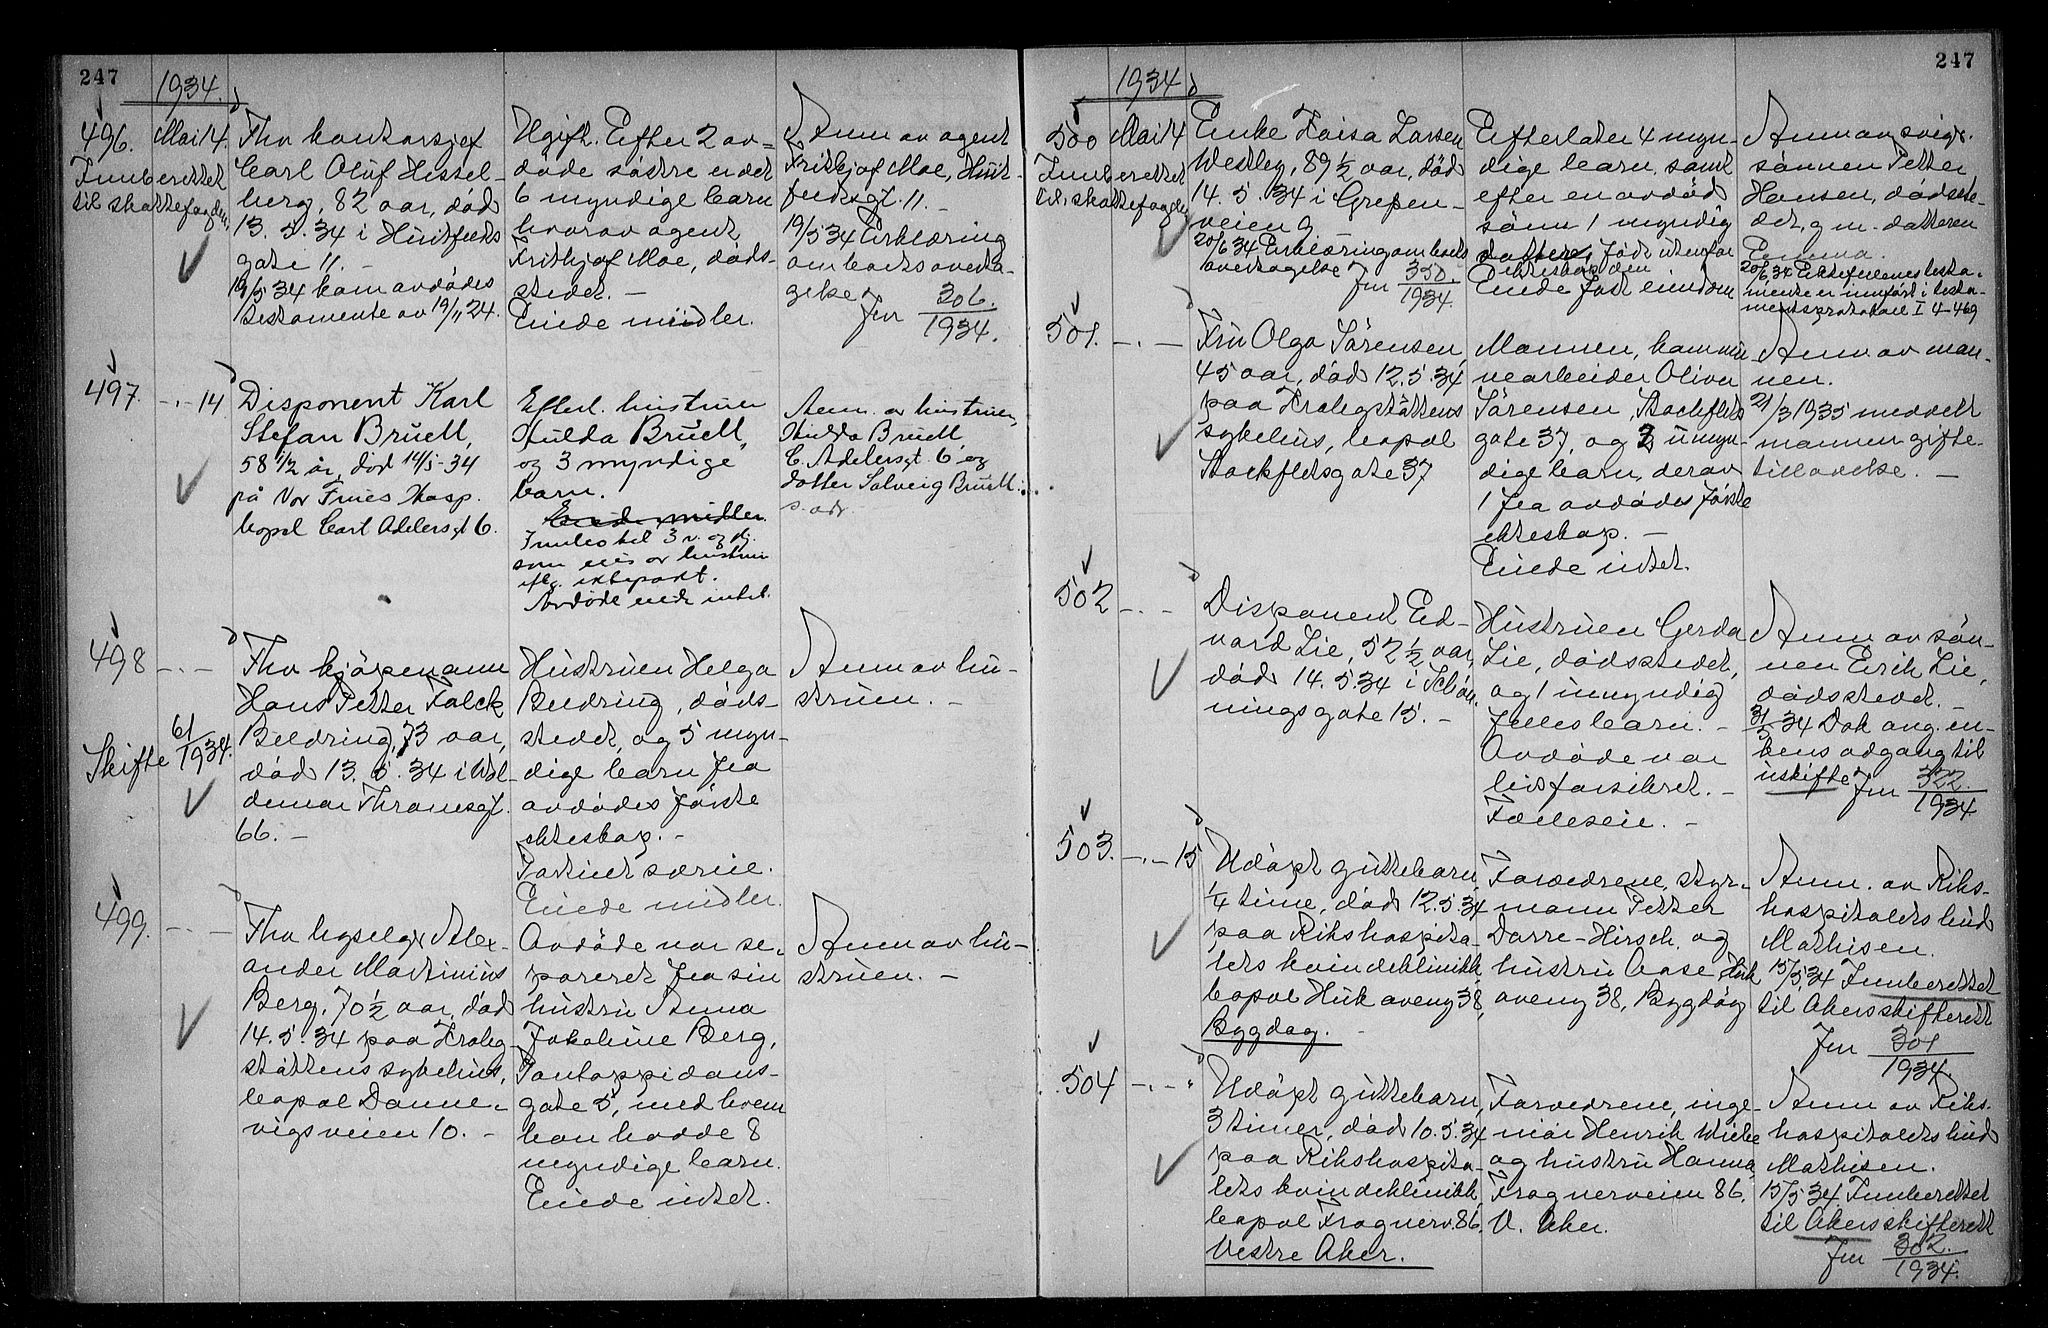 247
1934.
496.
Mai 14.
Innberettet
til skattefogden,
Fhv kontorsjef
Carl Oluf Hissel-
berg, 82 aar, död
13. 5. 34 i Huitfeldts
gate 11. -
19/5 34 kom avdödes
testamente av 19/11 24.
Ugift. Efter 2 av-
döde söstre er det
6 myndige barn
hvorav agent
Frithjof Moe, döds-
stedet. -
Eiede midler.
Anm av agent
Frithjof Moe, Huit-
feldtsgt. 11. -
19/5 34 Erklæring
om boets overta-
gelse
Jnr 306.
1934.
497.
-.- 14
Disponent Karl
Stefan Bruell,
58 1/2 år, död 14/5-34
på Vor Frues Hosp.
bopel Carl Adelersgt 6.
Efterl. hustruen
Hulda Bruell,
og 3 myndige
barn.
Eiede midler.
Innbo til 3 v. og kj.
som eies av hustruen
iflg. ektepakt.
Avdöde eiede intet.
Anm. av hustruen,
Hulda Bruell,
C. Adelersgt. 6 og
datter Solveig Bruell
s. adr.
498
-.-
Skifte 61/1934.
Fhv kjöpmann
Hans Petter Falck
Beldring, 73 aar,
död 13. 5. 34 i Wal-
demar Thranesgt.
66. -
Hustruen Helga
Beldring, döds-
stedet, og 5 myn-
dige barn fra
avdödes förste
ekteskap. -
Partiet særeie.
Eiede midler.
Anm av hu-
struen. -
499.
-.-
Fhv byselger Alex-
ander Martinius
Berg, 70 1/2 aar, död
14. 5. 34 paa Krohg-
stöttens sykehus,
bopel Danne-
vigsveien 10. -
Avdöde var se-
parert fra sin
hustru Anna
Jakobine Berg,
Pontoppidans-
gate 5, med hvem
han hadde 8
myndige barn.
Eiede intet.
Anm av hu-
struen. -
247
1934
500
Mai 14
Innberettet
til skattefogden
Enke Kaisa Larsen
Westley, 89 1/2 aar, död
14. 5. 34 i Grefsen-
veien 9.
20/6 34 Erklæring om boets
overtagelse Jnr 350
1934.
Efterlater 4 myn-
dige barn, samt
efter en avdöd
sönn 1 myndig
datter, födt utenfor
ekteskap den
Eiede fast eiendom
Anm av sviger-
sönnen Petter
Hansen, dödsste-
det, g. m. datteren
20/6 34 Ektefellenes testa-
mente er innfört i testa-
mentsprotokoll I 4-469
501.
-.-
Fru Olga Sörensen,
45 aar, död 12. 5. 34,
paa Krohgstöttens
sykehus, bopel
Stockfletsgate 37
Mannen, kommu-
nearbeider Oliver
Sörensen, Stockflets
gate 37, og 2 umyn-
dige barn, derav
1 fra avdödes förste
ekteskap. -
Eiede intet.
Anm av man-
nen.
21/3 1935 meddelt
mannen gifte-
tillatelse. -
502
-.-
Disponent Ed-
vard Lie, 52 1/2 aar,
död 14. 5. 34 i Schön-
ningsgate 15. -
Hustruen Gerda
Lie, dödsstedet,
og 1 umyndig
felles barn. -
Avdöde var
livsforsikret. -
Felleseie. -
Anm av sön-
nen Erik Lie,
dödsstedet. -
31/5 34 Dok ang. en-
kens adgang til
uskifte Jnr 322
1934
503.
-.- 15
Udöpt guttebarn,
1/4 time, död 12. 5. 34
paa Rikshospita-
lets kvindeklinikk,
bopel Huk aveny 38,
Bygdög. -
Forældrene, styr-
mann Petter
Darre-Hirsch, og
hustru Aase, Huk
aveny 38, Bygdög
Anm. av Riks-
hospitalets bud
Mathisen.
15/5 34 Innberettet
til Akers skifterett
Jnr 301
1934.
504
-.- "
Udöpt guttebarn,
3 timer, död 10. 5. 34
paa Rikshospita-
lets kvindeklinikk,
bopel Frognerv. 86,
Vestre Aker.
Forældrene, inge-
niör Henrik Wiebe
og hustru Hanna,
Frognerveien 86,
V. Aker.
Anm av Riks-
hospitalets bud
Mathisen.
15/5 34 Innberettet
til Akers skifterett
Jnr 302.
1934.